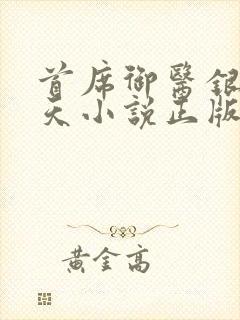 首席御醫銀
天小說正版
黃金高